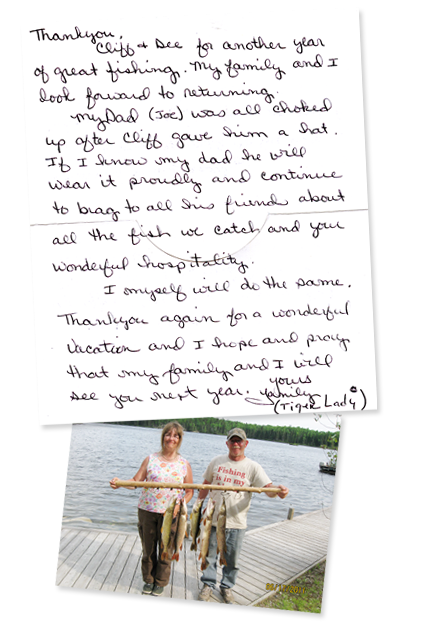 Thankyou,
Cliff + for another year
of great fishing. My family and I
look forward to returning.
My Dad (Joe) was all choked
up after Cliff gave him a hat.
If I know my dad he will
wear it proudly and continue
to brag to all his friends about
all the fish we catch and your
wonderful hospitality.
I myself will do the same.
Thankyou again for a wonderful
Vacation and I hope and pray
that my family and I will
yours
see you next year.
(Tiger Lady)
Fishing
is in my